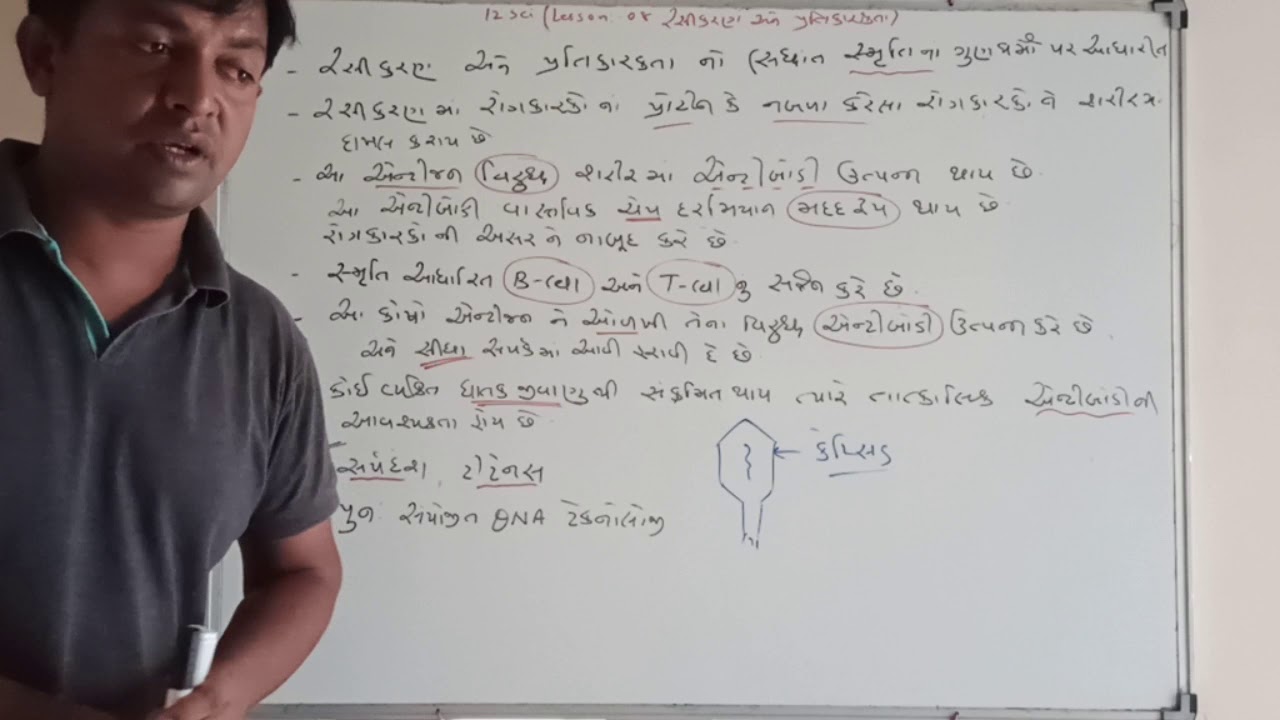 12 sci (Lesson 08 રસીકરણ અને પ્રતિકારકતા)
- રસીકરણ અને પ્રતિકારકતા નો સિદ્ધાંત સ્મૃતિના ગુણધર્મો પર આધારીત
- રસીકરણમાં રોગકારકોનાં પ્રોટીન કે નબળા કરેલા રોગકારકોને શરીરમાં
દાખલ કરાય છે
- આ એન્ટીજન વિરુધ્ધ શરીરમાં એન્ટીબોડી ઉત્પન્ન થાય છે.
આ એન્ટીબોડી વાસ્તવિક ચેપ દરમિયાન મદદરૂપ થાય છે
રોગકારકોની અસરને નાબૂદ કરે છે.
- સ્મૃતિ આધારિત B-કોષો અને T-કોષો નુ સર્જન કરે છે.
- આ કોષો એન્ટીજન ને ઓળખી તેના વિરુધ્ધ એન્ટીબોડી ઉત્પન્ન કરે છે
અને સીધા સંપર્કમાં આવી દે છે.
કોઈ વ્યક્તિ ઘાતક જીવાણુથી સંક્રમિત થાય ત્યારે તાત્કાલિક એન્ટીબોડીની
આવશ્યકતા હોય છે.
સર્પદંશ, ટીટેનસ
પુન: સંયોજીત DNA ટેકનોલોજી
કેપ્સિડ